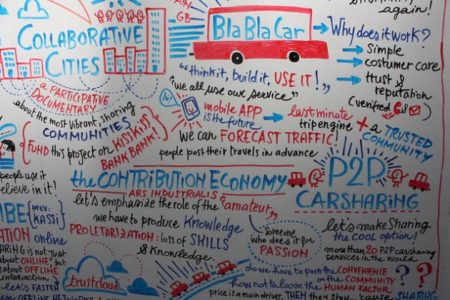 again!
GB
COLLABORATIVE
CITIES
BlaBlaCar
Why does it work?
simple
costumer care
trust &
reputation
(verified
"think it, build it, USE IT!"
"we all use our service"
a PARTICIPATIVE
DOCUMENTARY
about the most vibrant sharing
COMMUNITIES
FUND this project on KISSKISS
BANKBANK!
mobile APP
is the future
last minute
trip engine
+ a TRUSTED
COMMUNITY
we can FORECAST TRAFFIC!
people post their travels in advance
ple use
believe in it!
the CONTRIBUTION ECONOMY
ARS INDUSTRIALIS
let's emphasize the role of the "amateur"
we have to produce knowledge
PROLETARIZATION: lots of SKILLS
& knowledge
someone
who does it for
PASSION
P2P
CARSHARING
let's make Sharing
the COOL option!
more than 20 P2P carsharing
services in the world
IBE
(prev.
kassi)
ATION online
ARING is not just
about ONLINE but
about OFFLINE
let's FASTER
trustcloud
do we have to push the CONVENIENCE
how not to loose the HUMAN FACTOR
or the COMMUNITY
? ?
price is a main driver, THEN